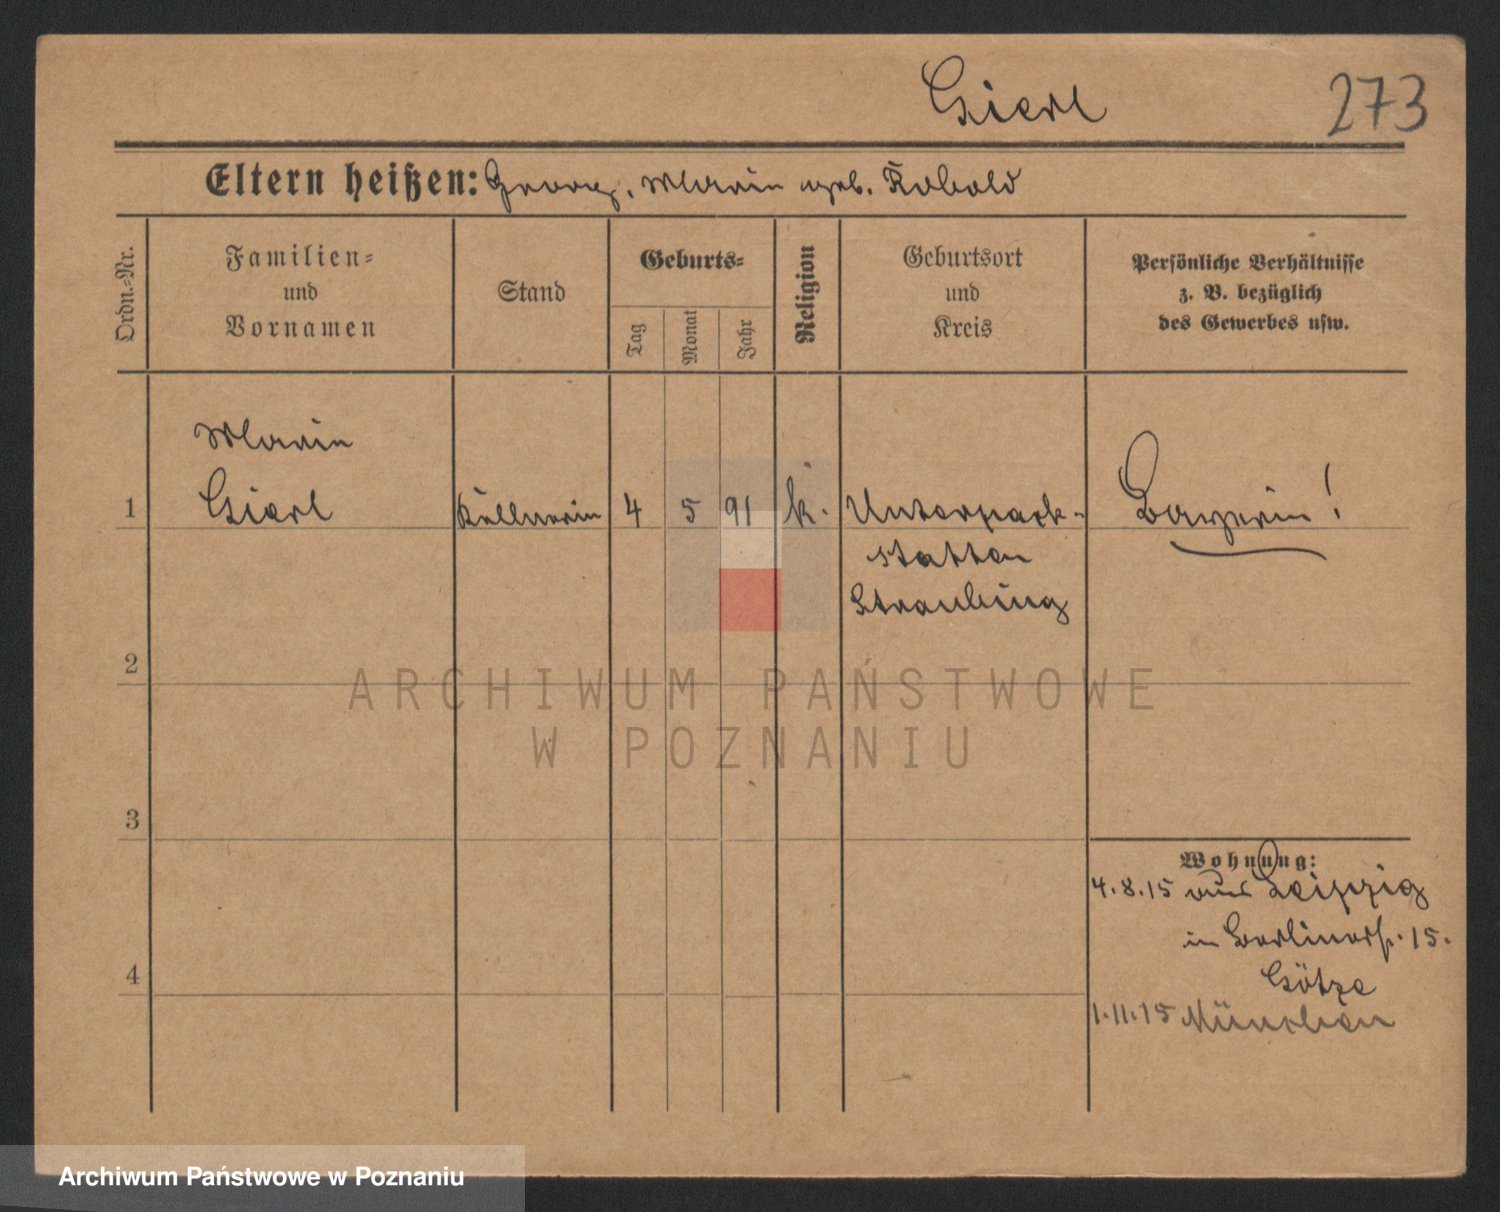 Gierl 273
Eltern heißen: Georg, Maria geb. Kobold
Ordn.-Nr.
Familien-
und
Vornamen
Stand
Geburts-
Tag
Monat
Jahr
Religion
Geburtsort
und
Kreis
Persönliche Verhältnisse
z. B. bezüglich
des Gewerbes usw.
Maria
1 Gierl Kellnerin 4 5 91 k. Unterpark- Bayerin!
stetten
Straubing
2
ARCHIWUM PAŃSTWOWE
W POZNANIU
3
Wohnung:
4.8.15 aus Leipzig
in Berlinerstr. 15.
4
Götze
1.11.15 München
Archiwum Państwowe w Poznaniu